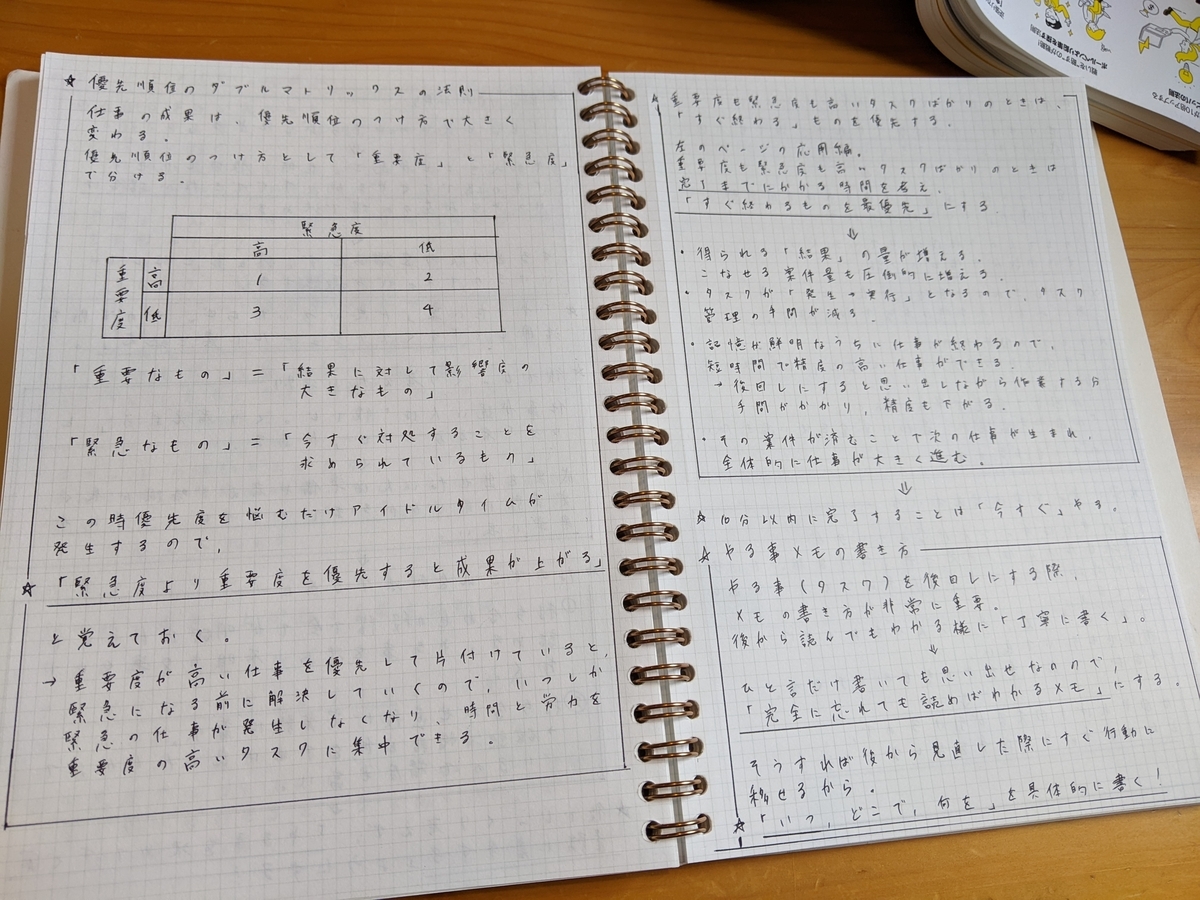 ☆ 優先順位のダブルマトリックスの法則
仕事の成果は、優先順位のつけ方で大きく
変わる。
優先順位のつけ方として「重要度」と「緊急度」
で分ける。
緊急度
高 低
重要度 高 1 2
低 3 4
「重要なもの」=「結果に対して影響度の
大きなもの」
「緊急なもの」=「今すぐ対処することを
求められているもの」
この時優先度を悩むだけアイドルタイムが
発生するので、
☆「緊急度より重要度を優先すると成果が上がる」
と覚えておく。
→ 重要度が高い仕事を優先して片付けていると、
緊急になる前に解決していくので、いつしか
緊急の仕事が発生しなくなり、時間と労力を
重要度の高いタスクに集中できる。
重要度も緊急度も高いタスクばかりのときは、
「すぐ終わる」ものを優先する。
左のページの応用編。
重要度も緊急度も高いタスクばかりのときは
完了までにかかる時間を考え、
「すぐ終わるものを最優先」にする
⇓
・得られる「結果」の量が増える。
こなせる案件量も圧倒的に増える。
・タスクが「発生→実行」となるので、タスク
管理の手間が減る。
・記憶が鮮明なうちに仕事が終わるので、
短時間で精度の高い仕事ができる。
→後回しにすると思い出しながら作業する分
手間がかかり、精度も下がる。
・その案件が済むことで次の仕事が生まれ、
全体的に仕事が大きく進む。
⇓
☆ 10分以内に完了することは「今すぐ」やる。
☆ やる事メモの書き方
やる事(タスク)を後回しにする際、
メモの書き方が非常に重要。
後から読んでもわかる様に「丁寧に書く」。
↓
ひと言だけ書いても思い出せないので、
「完全に忘れても読めばわかるメモ」にする。
そうすれば後から見直した際にすぐ行動に
移せるから。
☆「いつ、どこで、何を」を具体的に書く!